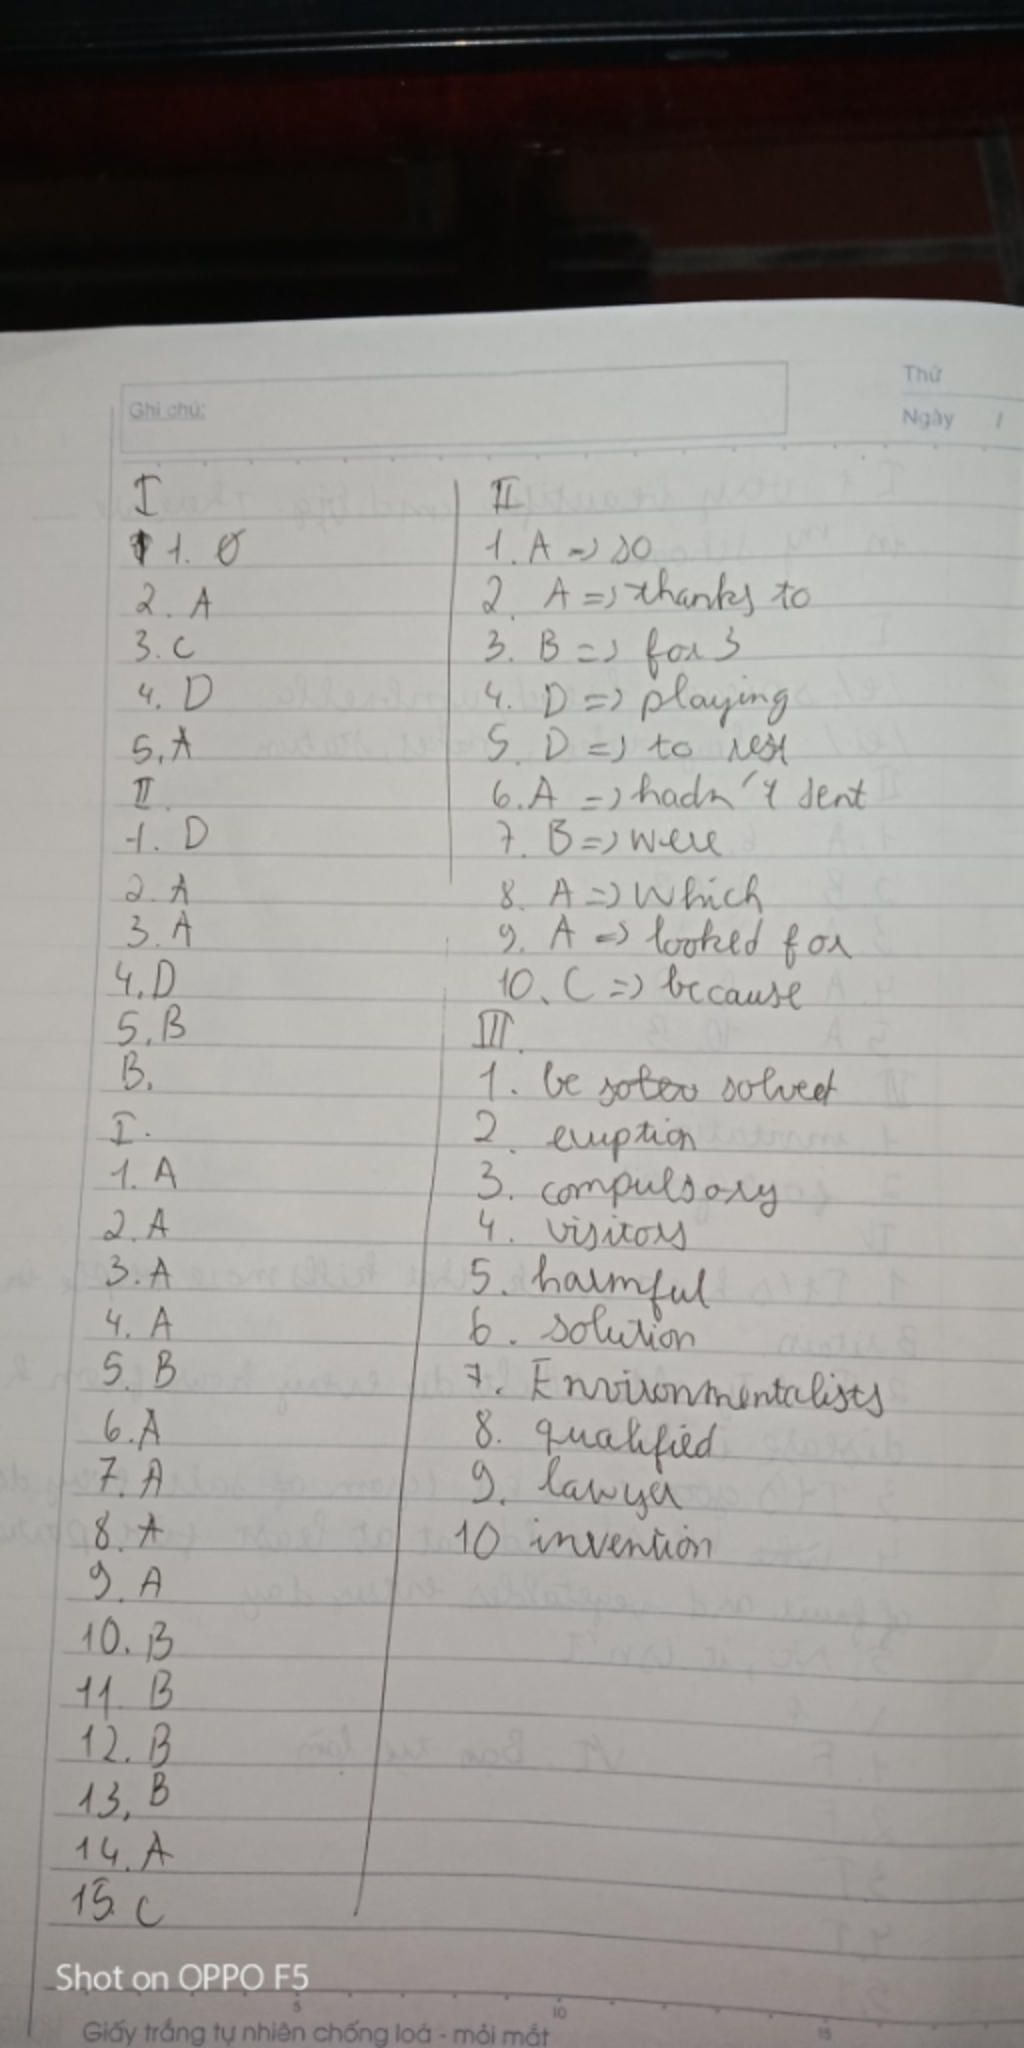 Ghi chú:
Thứ
Ngày /
I
1.
2. A
3. C
4. D
5. A
II.
1. D
2. A
3. A
4. D
5. B
B.
I.
1. A
2. A
3. A
4. A
5. B
6. A
7. A
8. A
9. A
10. B
11. B
12. B
13. B
14. A
15. C
II
1. A => so
2. A => thanks to
3. B => for 3
4. D => playing
5. D => to rest
6. A => hadn't sent
7. B => were
8. A => Which
9. A => looked for
10. C => because
III.
1. be solved
2. eruption
3. compulsory
4. visitors
5. harmful
6. solution
7. Environmentalists
8. qualified
9. lawyer
10 invention
Shot on OPPO F5
5 10 15
Giấy trắng tự nhiên chống loá - mỏi mắt